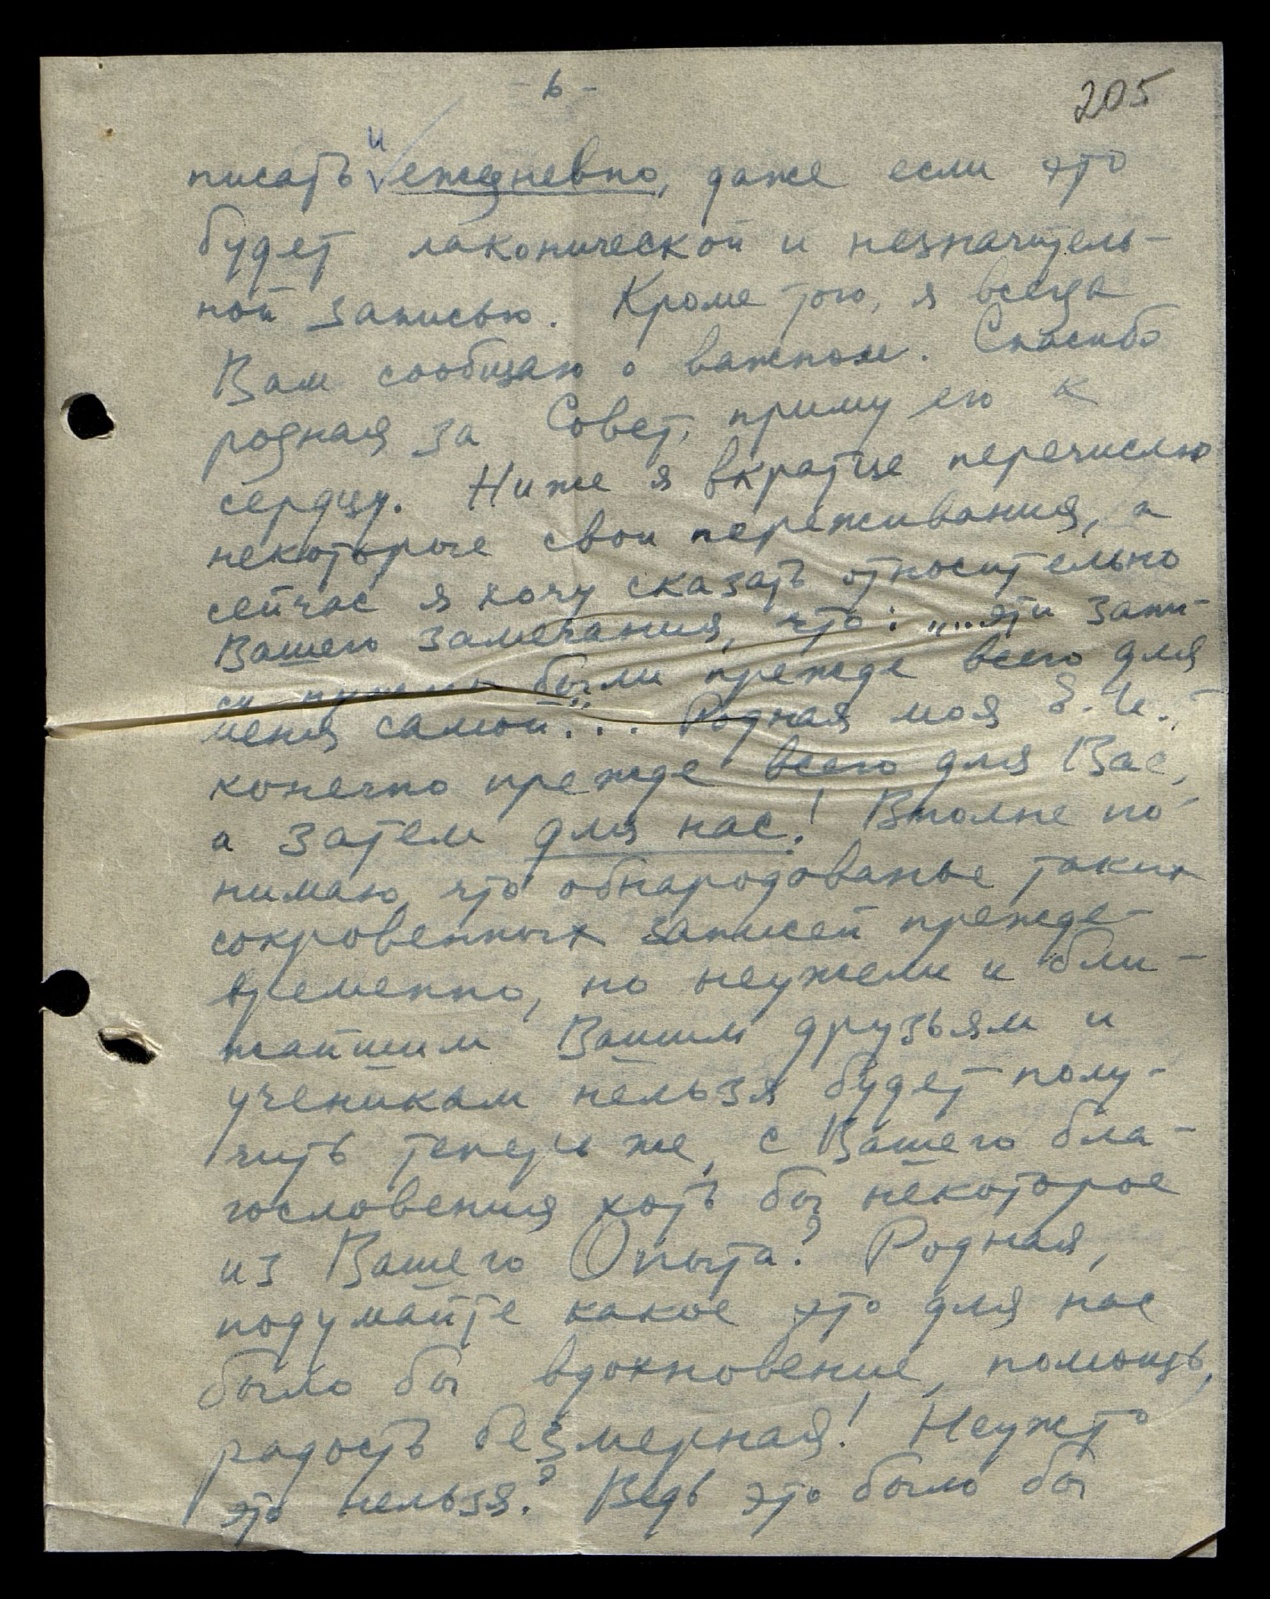 - 6 -
205
писать и ежедневно, даже если это
будет лаконической и незначитель-
ной записью. Кроме того, я всегда
Вам сообщаю о важном. Спасибо
родная за Совет, приму его к
сердцу. Ниже я вкратце перечислю
некоторые свои переживания, а
сейчас я хочу сказать относительно
Вашего замечания, что: „...эти запи-
си нужны были прежде всего для
меня самой"... Родная моя Е.И.,
конечно прежде всего для Вас,
а затем для нас! Вполне по-
нимаю, что обнародованье таких
сокровенных записей прежде-
временно, но неужели и бли-
жайшим Вашим друзьям и
ученикам нельзя будет полу-
чить теперь же, с Вашего бла-
гословения хоть бы некоторое
из Вашего Опыта? Родная,
подумайте какое это для нас
было бы вдохновение, помощь,
радость безмерная! Неужто
это нельзя? Ведь это было бы